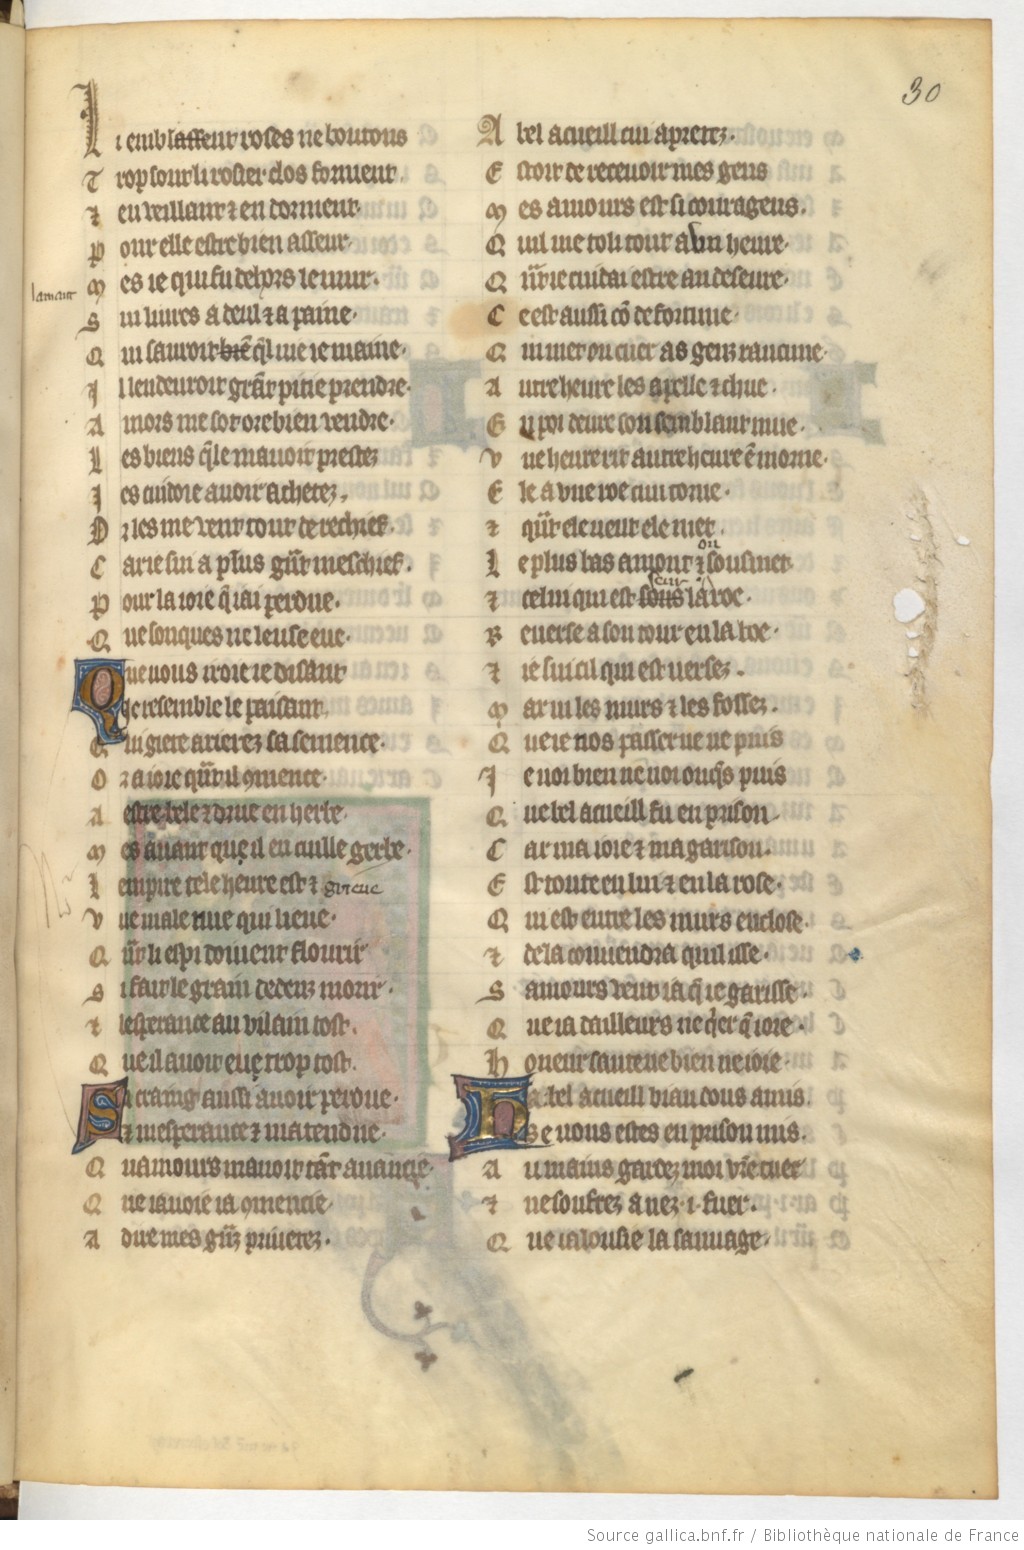 30
Li emblasseur roses ne boutons
Trop sour li rosier clos forment
⁊ en veillant ⁊ en dorment
Pour elle estre bien asseur
lamant
Mes ie qui fu dehors le mur
Sui liures a deul ⁊ a paine
Qui sauroit bien q̃l uie ie maine
Il len deuroit grãt pitie prendre
Amors me sot ore bien vendre
Les biens q̃le mauoit prestez
Jes cuidoie auoir achetez
Or les me vent tout de rechief
Car ie sui a plus grãt meschief
Pour la ioie q̃ iai perdue
Que sonques ne leusse eue
Que vous iroie ie disant
Je resemble le paisant
Qui giete arierez sa semence
Or a ioie quãt il ꝯmence
A estre bele ⁊ drue en herbe
Mes auant que il en cuille gerbe
Lempire tele heure est ⁊ grieue
Vne male nue qui lieue
Quãt li espi doiuent flourir
Si fait le grain dedenz morir
⁊ lesperance au vilain tost
Que il auoit eue trop tost
Si craing aussi auoir perdue
⁊ mesperance ⁊ matendue
Quamours mauoit tãt auancie
Que iauoie ia ꝯmencie
A dire mes grãz priuetez
A bel acueill qui apretez
Estoit de receuoir mes geus
Mes amours est si courageus
Quil me toli tout a vn heure
Quãt ie cuidai estre au deseure
Ce est aussi cõ de fortune
Qui met ou cuer as genz rancune
Autre heure les apelle ⁊ chue
En poi deure son semblant mue
Vne heure rit autre heure ẽ morne
Ele a vne roe qui torne
⁊ quãt ele veut ele met
Le plus bas amont ⁊ ou sousmet
⁊ celui qui est sous seur la roe
Reuerse a son tour en la boe
⁊ ie sui cil qui est versez
Mar vi les murs ⁊ les fossez
Que ie nos passer ne ne puis
Je noi bien ne ioi onq̃s puis
Que bel acueill fu en prison
Car ma ioie ⁊ ma garison
Est toute en lui ⁊ en la rose
Qui est entre les murs enclose
⁊ de la conuendra quil isse
Samours veut ia q̃ ie garisse
Que ia dailleurs ne q̃er q̃ ioie
Honeur sante ne bien ne ioie
Ha bel acueill biau dous amis
Se vous estes en prison mis
Au mains gardez moi vr̃e cuer
⁊ ne soufrez a nez .i. fuer
Que ialousie la sauuage
Source gallica.bnf.fr / Bibliothèque nationale de France